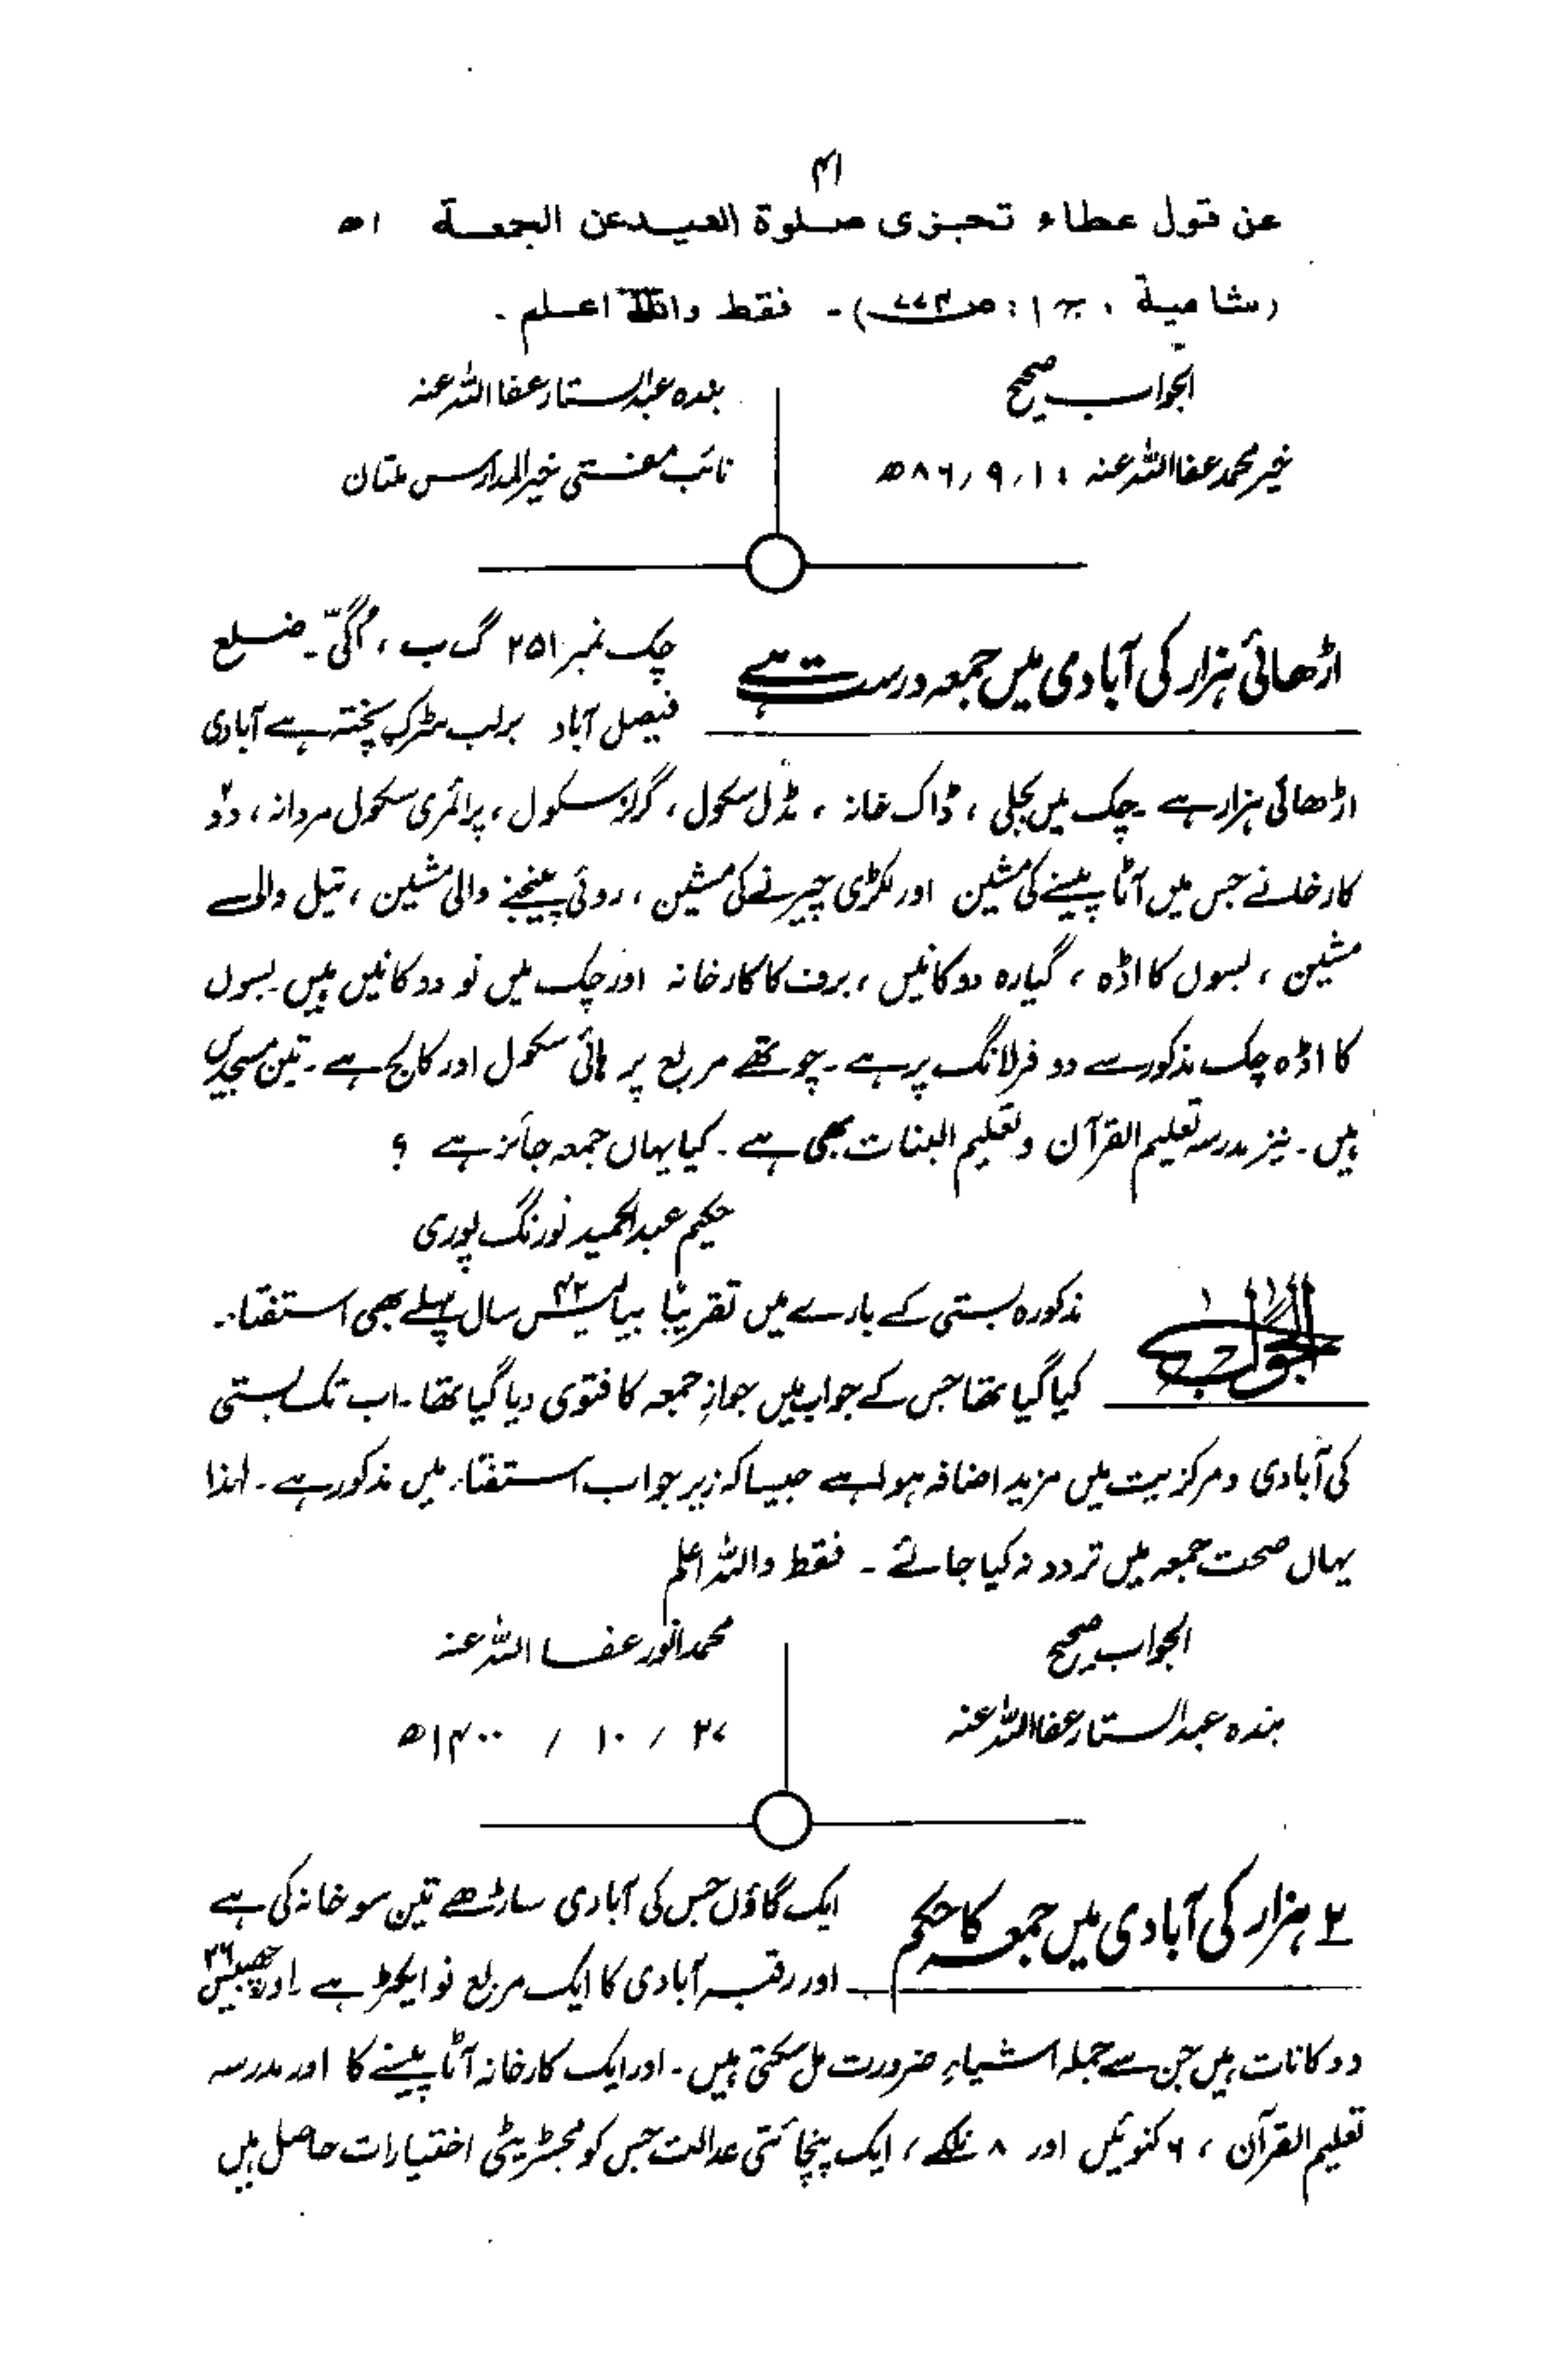 ۴۱
عن قول عطاء تجزی صلوة العید عن الجمعة اھ
(شامیة ، ج ۱ : ص ۷۷۴)۔ فقط واللہ اعلم ۔
الجواب صحیح
خیر محمد عفا اللہ عنہ ۱۰؍۹؍۸۶ھ
بندہ عبدالستار عفا اللہ عنہ
نائب مفتی خیرالمدارس ملتان
اڑھائی ہزار کی آبادی میں جمعہ درست ہے
چک نمبر ۲۵۱ گ ب ، اُگّی ۔ ضلع
فیصل آباد برلب سڑک پختہ ہے آبادی
اڑھائی ہزار ہے ۔ چک میں بجلی ، ڈاک خانہ ، مڈل سکول ، گرلز سکول ، پرائمری سکول مردانہ ، دو
کارخانے جس میں آٹا پیسنے کی مشین اور لکڑی چیرنے کی مشین ، روئی پینجنے والی مشین ، تیل والی
مشین ، بسوں کا اڈہ ، گیارہ دوکانیں ، برف کا کارخانہ اور چک میں نو دوکانیں ہیں بسوں
کا اڈہ چک مذکور سے دو فرلانگ پر ہے ۔ چوتھے مربع پر ہائی سکول اور کالج ہے ۔ تین مسجدیں
ہیں ۔ نیز مدرسہ تعلیم القرآن وتعلیم البنات بھی ہے ۔ کیا یہاں جمعہ جائز ہے ؟
حکیم عبدالحمید نورنگ پوری
الجواب
مذکورہ بستی کے بارے میں تقریبًا بیالیس ۴۲ سال پہلے بھی استفتاء
کیا گیا تھا جس کے جواب میں جوازِ جمعہ کا فتویٰ دیا گیا تھا ۔ اب تک بستی
کی آبادی و مرکزیت میں مزید اضافہ ہوا ہے جیسا کہ زیر جواب استفتاء میں مذکور ہے ۔ لہٰذا
یہاں صحت جمعہ میں تردد نہ کیا جائے ۔ فقط واللہ اعلم
الجواب صحیح
بندہ عبدالستار عفا اللہ عنہ
محمد انور عفا اللہ عنہ
۲۷ / ۱۰ / ۱۴۰۰ھ
۲ ہزار کی آبادی میں جمعہ کا حکم
ایک گاؤں جس کی آبادی ساڑھے تین سو خانہ کی ہے
اور رقبہ آبادی کا ایک مربع نو ایکڑ ہے ۔ اور چھبیس ۲۶
دوکانات ہیں جن سے جملہ اشیاءِ ضرورت مل سکتی ہیں ۔ اور ایک کارخانہ آٹا پیسنے کا اور مدرسہ
تعلیم القرآن ، ۶ کنوئیں اور ۸ نلکے ، ایک پنچائتی عدالت جس کو مجسٹریٹی اختیارات حاصل ہیں